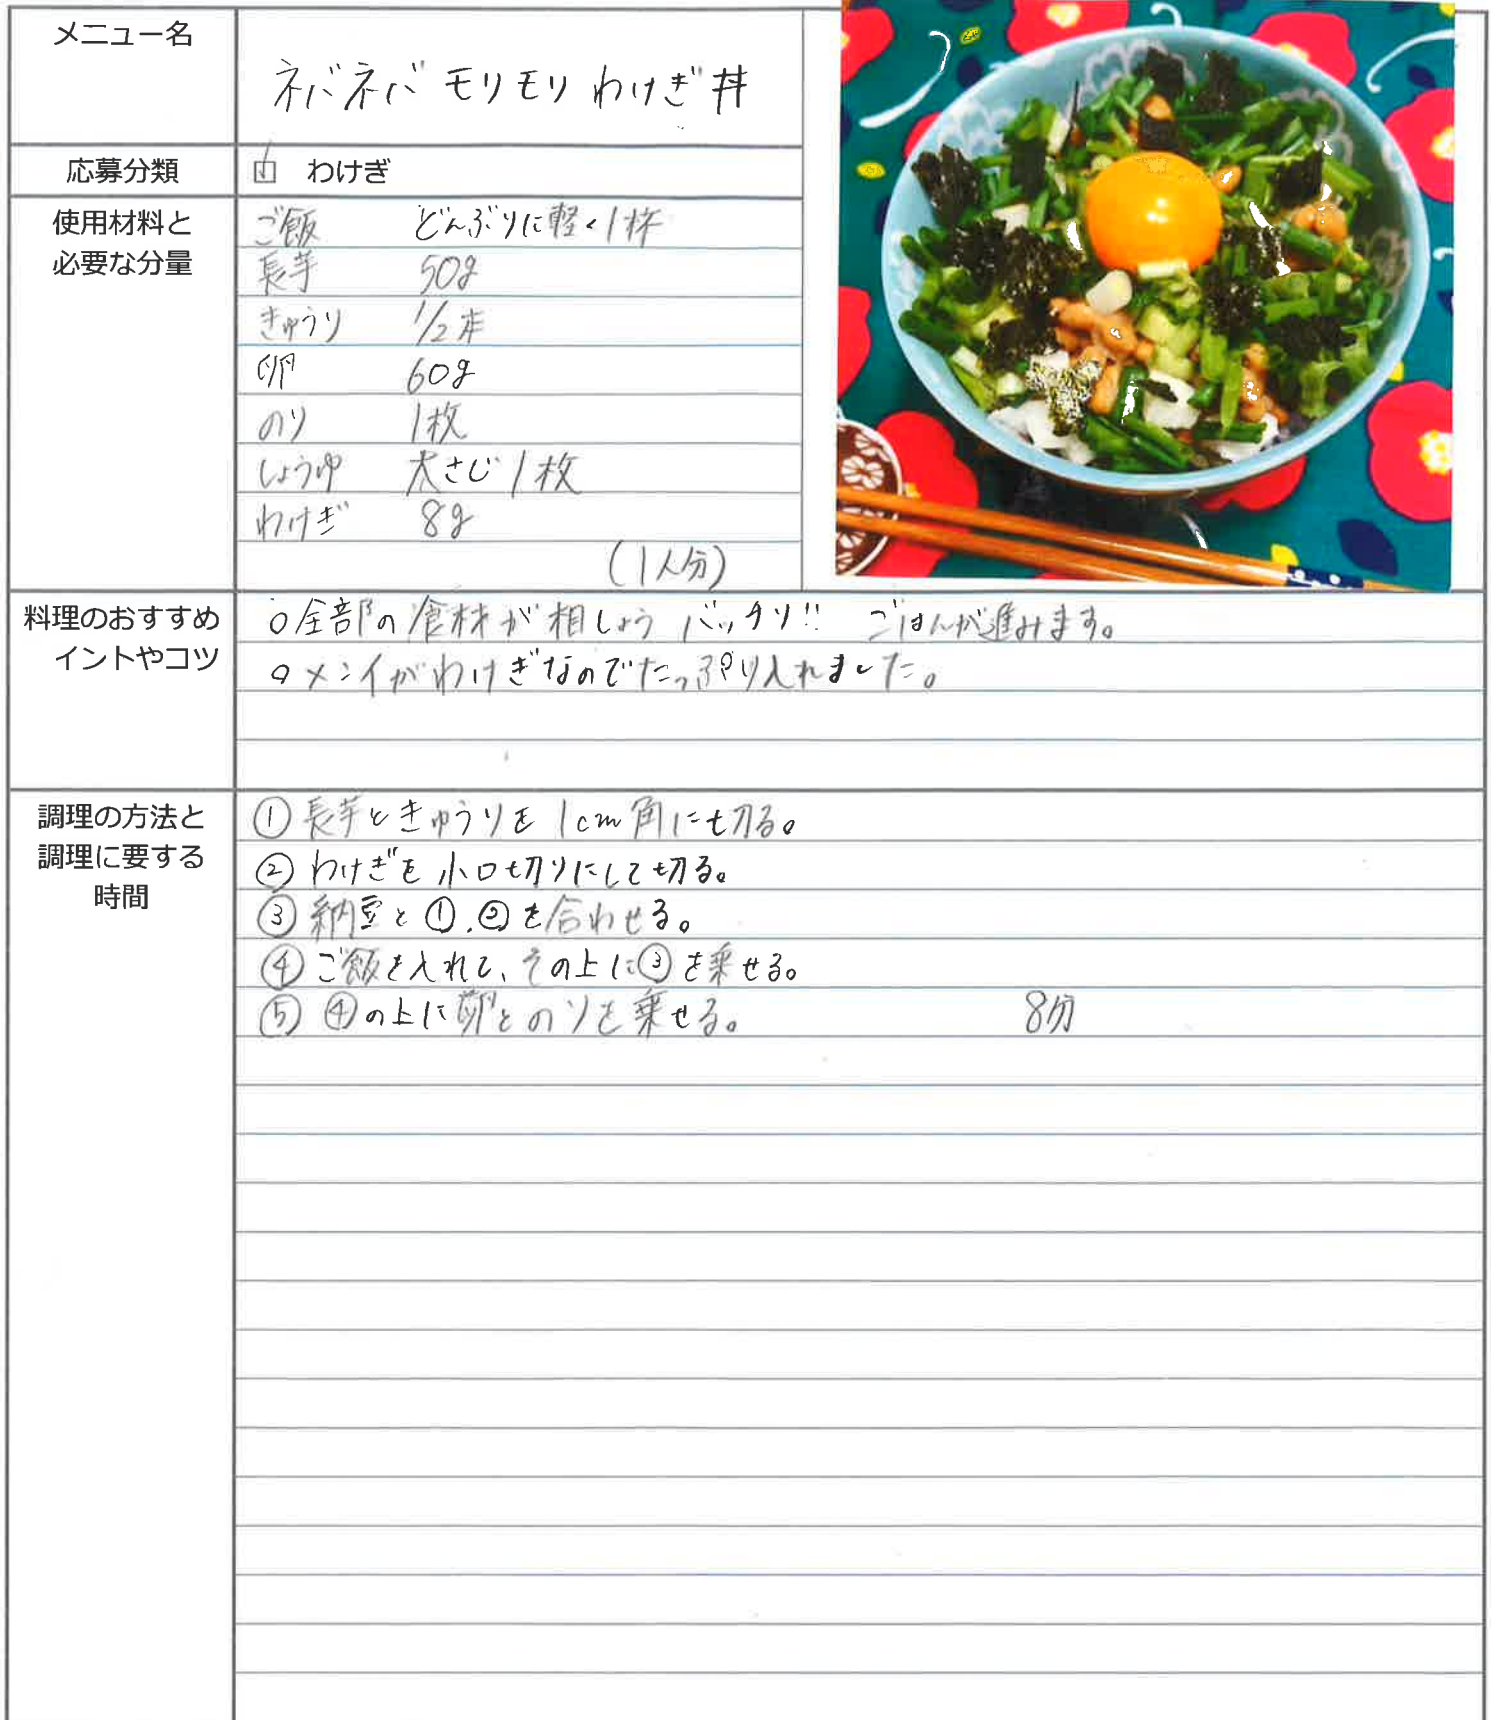 メニュー名
ネバネバ モリモリ わけぎ丼
応募分類
☑ わけぎ
使用材料と
必要な分量
ご飯 どんぶりに軽く1杯
長芋 50g
きゅうり 1/2本
卵 60g
のり 1枚
しょうゆ 大さじ1枚
わけぎ 8g
(1人分)
料理のおすすめ
イントやコツ
○全部の食材が相しょうバッチリ!! ごはんが進みます。
○メインがわけぎなのでたっぷり入れました。
調理の方法と
調理に要する
時間
① 長芋ときゅうりを1cm角に切る。
② わけぎを小口切りにして切る。
③ 納豆と①、②を合わせる。
④ ご飯を入れて、その上に③を乗せる。
⑤ ④の上に卵とのりを乗せる。 8分